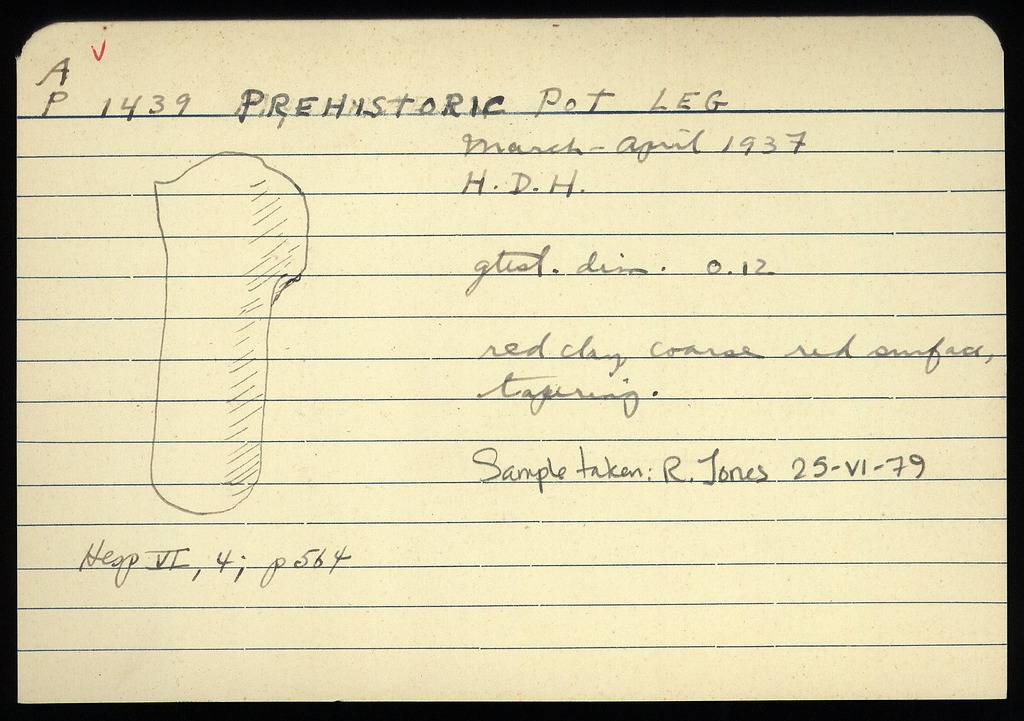 A
P 1439 PREHISTORIC POT LEG
March - April 1937
H. D. H.
gtest. dim. 0.12
red clay coarse red surface,
tapering.
Sample taken: R. Jones 25-VI-79
Hesp VI, 4; p 564